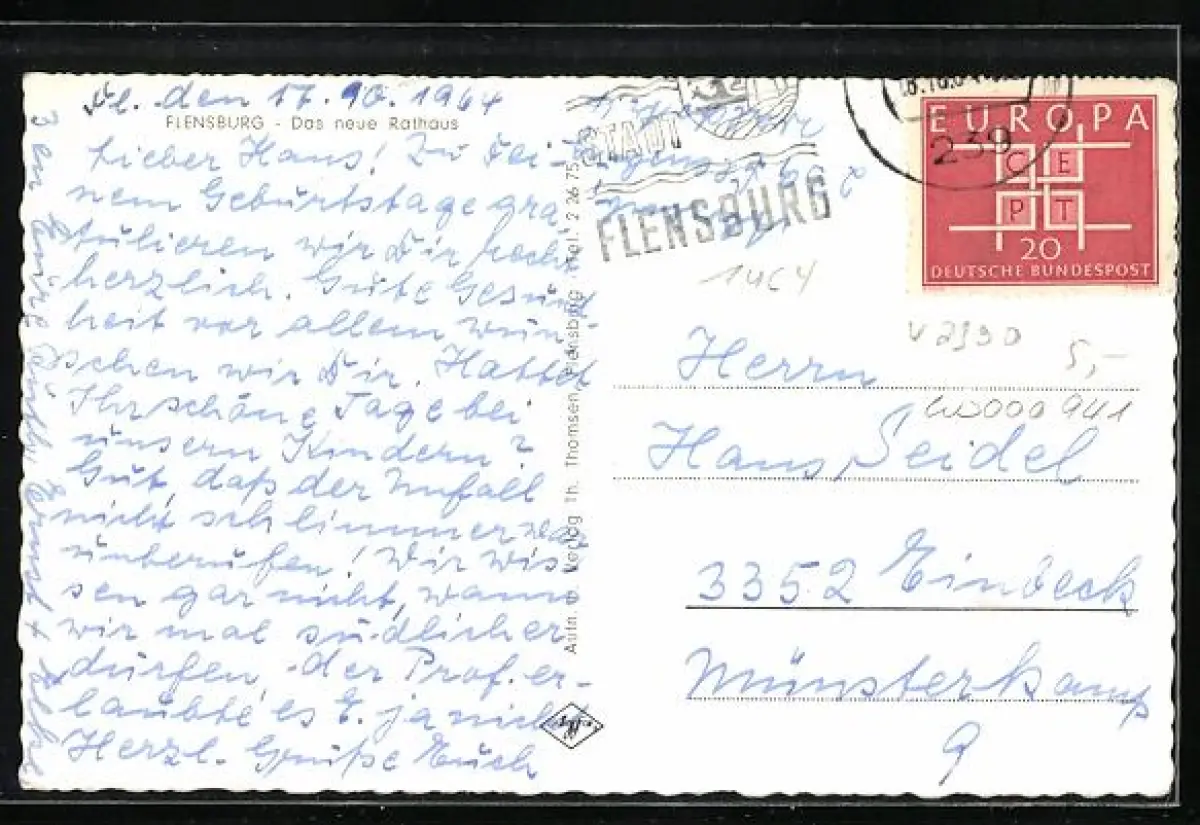 den 17.10.1964
FLENSBURG - Das neue Rathaus
Lieber Hans! Zu Dei-
nem Geburtstage gra-
tulieren wir Dir recht
herzlich. Gute Gesund-
heit vor allem wün-
schen wir Dir. Hattet
Ihr schöne Tage bei
unsern Kindern?
Gut, daß der Unfall
nicht schlimmer war
unberufen! Wir wis-
sen gar nicht, wann
wir mal südlicher
dürfen, der Prof. er-
laubte es E. ja nicht
Herzl. Grüße Euch
3en Eure Ernst +
Verlag Th. Thomsen, Flensburg, Tel. 2 26 75
STADT
FLENSBURG
239
EUROPA
CEPT
20
DEUTSCHE BUNDESPOST
1964
V2390
5,-
W000941
Herrn
Hans Seidel
3352 Einbeck
Münsterkamp
9